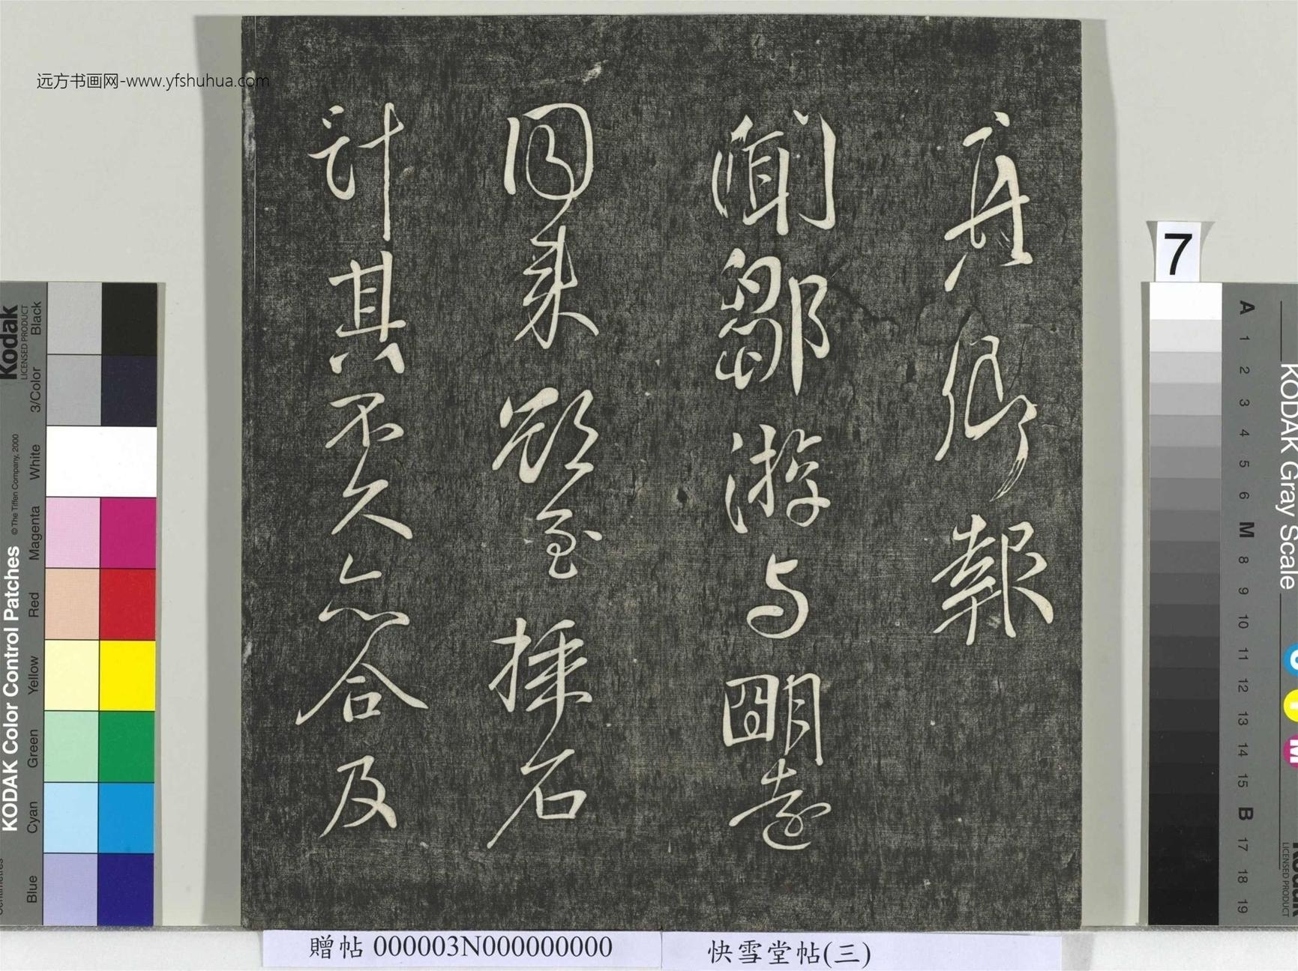 远方书画网-www.yfshuhua.com
真卿報
聞鄒游与明遠
同来欲至採石
計其不久亦合及
贈帖 000003N000000000
快雪堂帖(三)
7
KODAK Color Control Patches
© The Tiffen Company, 2000
Kodak
LICENSED PRODUCT
Black
3/Color
White
Magenta
Red
Yellow
Green
Cyan
Blue
KODAK Gray Scale
A 1 2 3 4 5 6 M 8 9 10 11 12 13 14 15 B 17 18 19